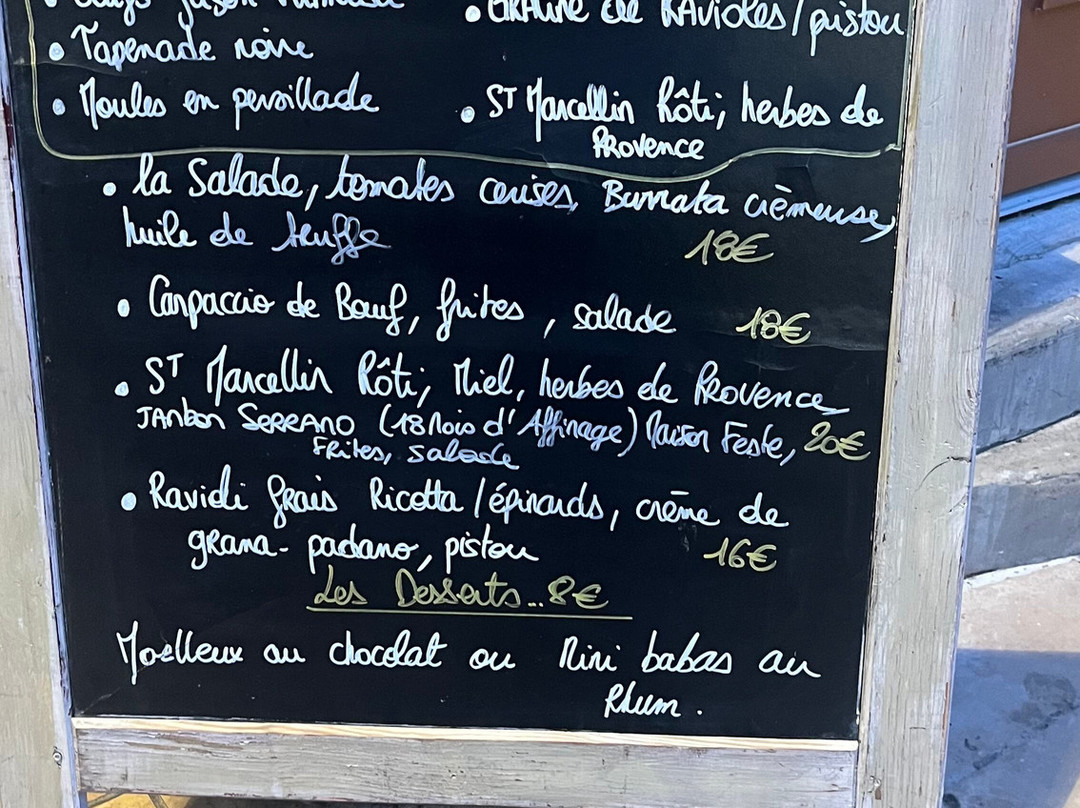 • GRATINÉ de RAVIOLES / pistou
• Tapenade noire
• Moules en persillade
• ST Marcellin Rôti, herbes de
PROVENCE
• la Salade, tomates cerises, Burrata crèmeuse,
huile de truffe 18€
• Carpaccio de Bœuf, frites, salade 18€
• ST Marcellin Rôti, Miel, herbes de PROVENCE,
JAmbon SERRANO (18 Mois d'Affinage) Maison Feste, 20€
FRites, salade
• Ravioli frais Ricotta / épinards, crème de
grana-padano, pistou 16€
Les Desserts... 8€
Moelleux au chocolat ou Mini babas au
Rhum.